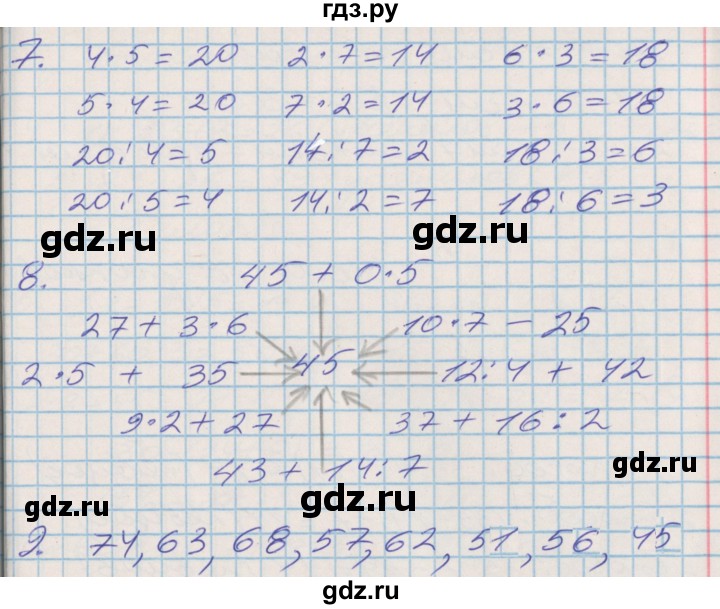 гдз.ру
7. 4·5=20 2·7=14 6·3=18
5·4=20 7·2=14 3·6=18
20:4=5 14:7=2 18:3=6
20:5=4 14:2=7 18:6=3
gdz.ru gdz.ru
8. 45+0·5
27+3·6 10·7-25
2·5+35 45 12:4+42
9·2+27 37+16:2
43+14:7
gdz.ru
gdz.ru gdz.ru
9. 74,63,68,57,62,51,56,45
gdz.ru